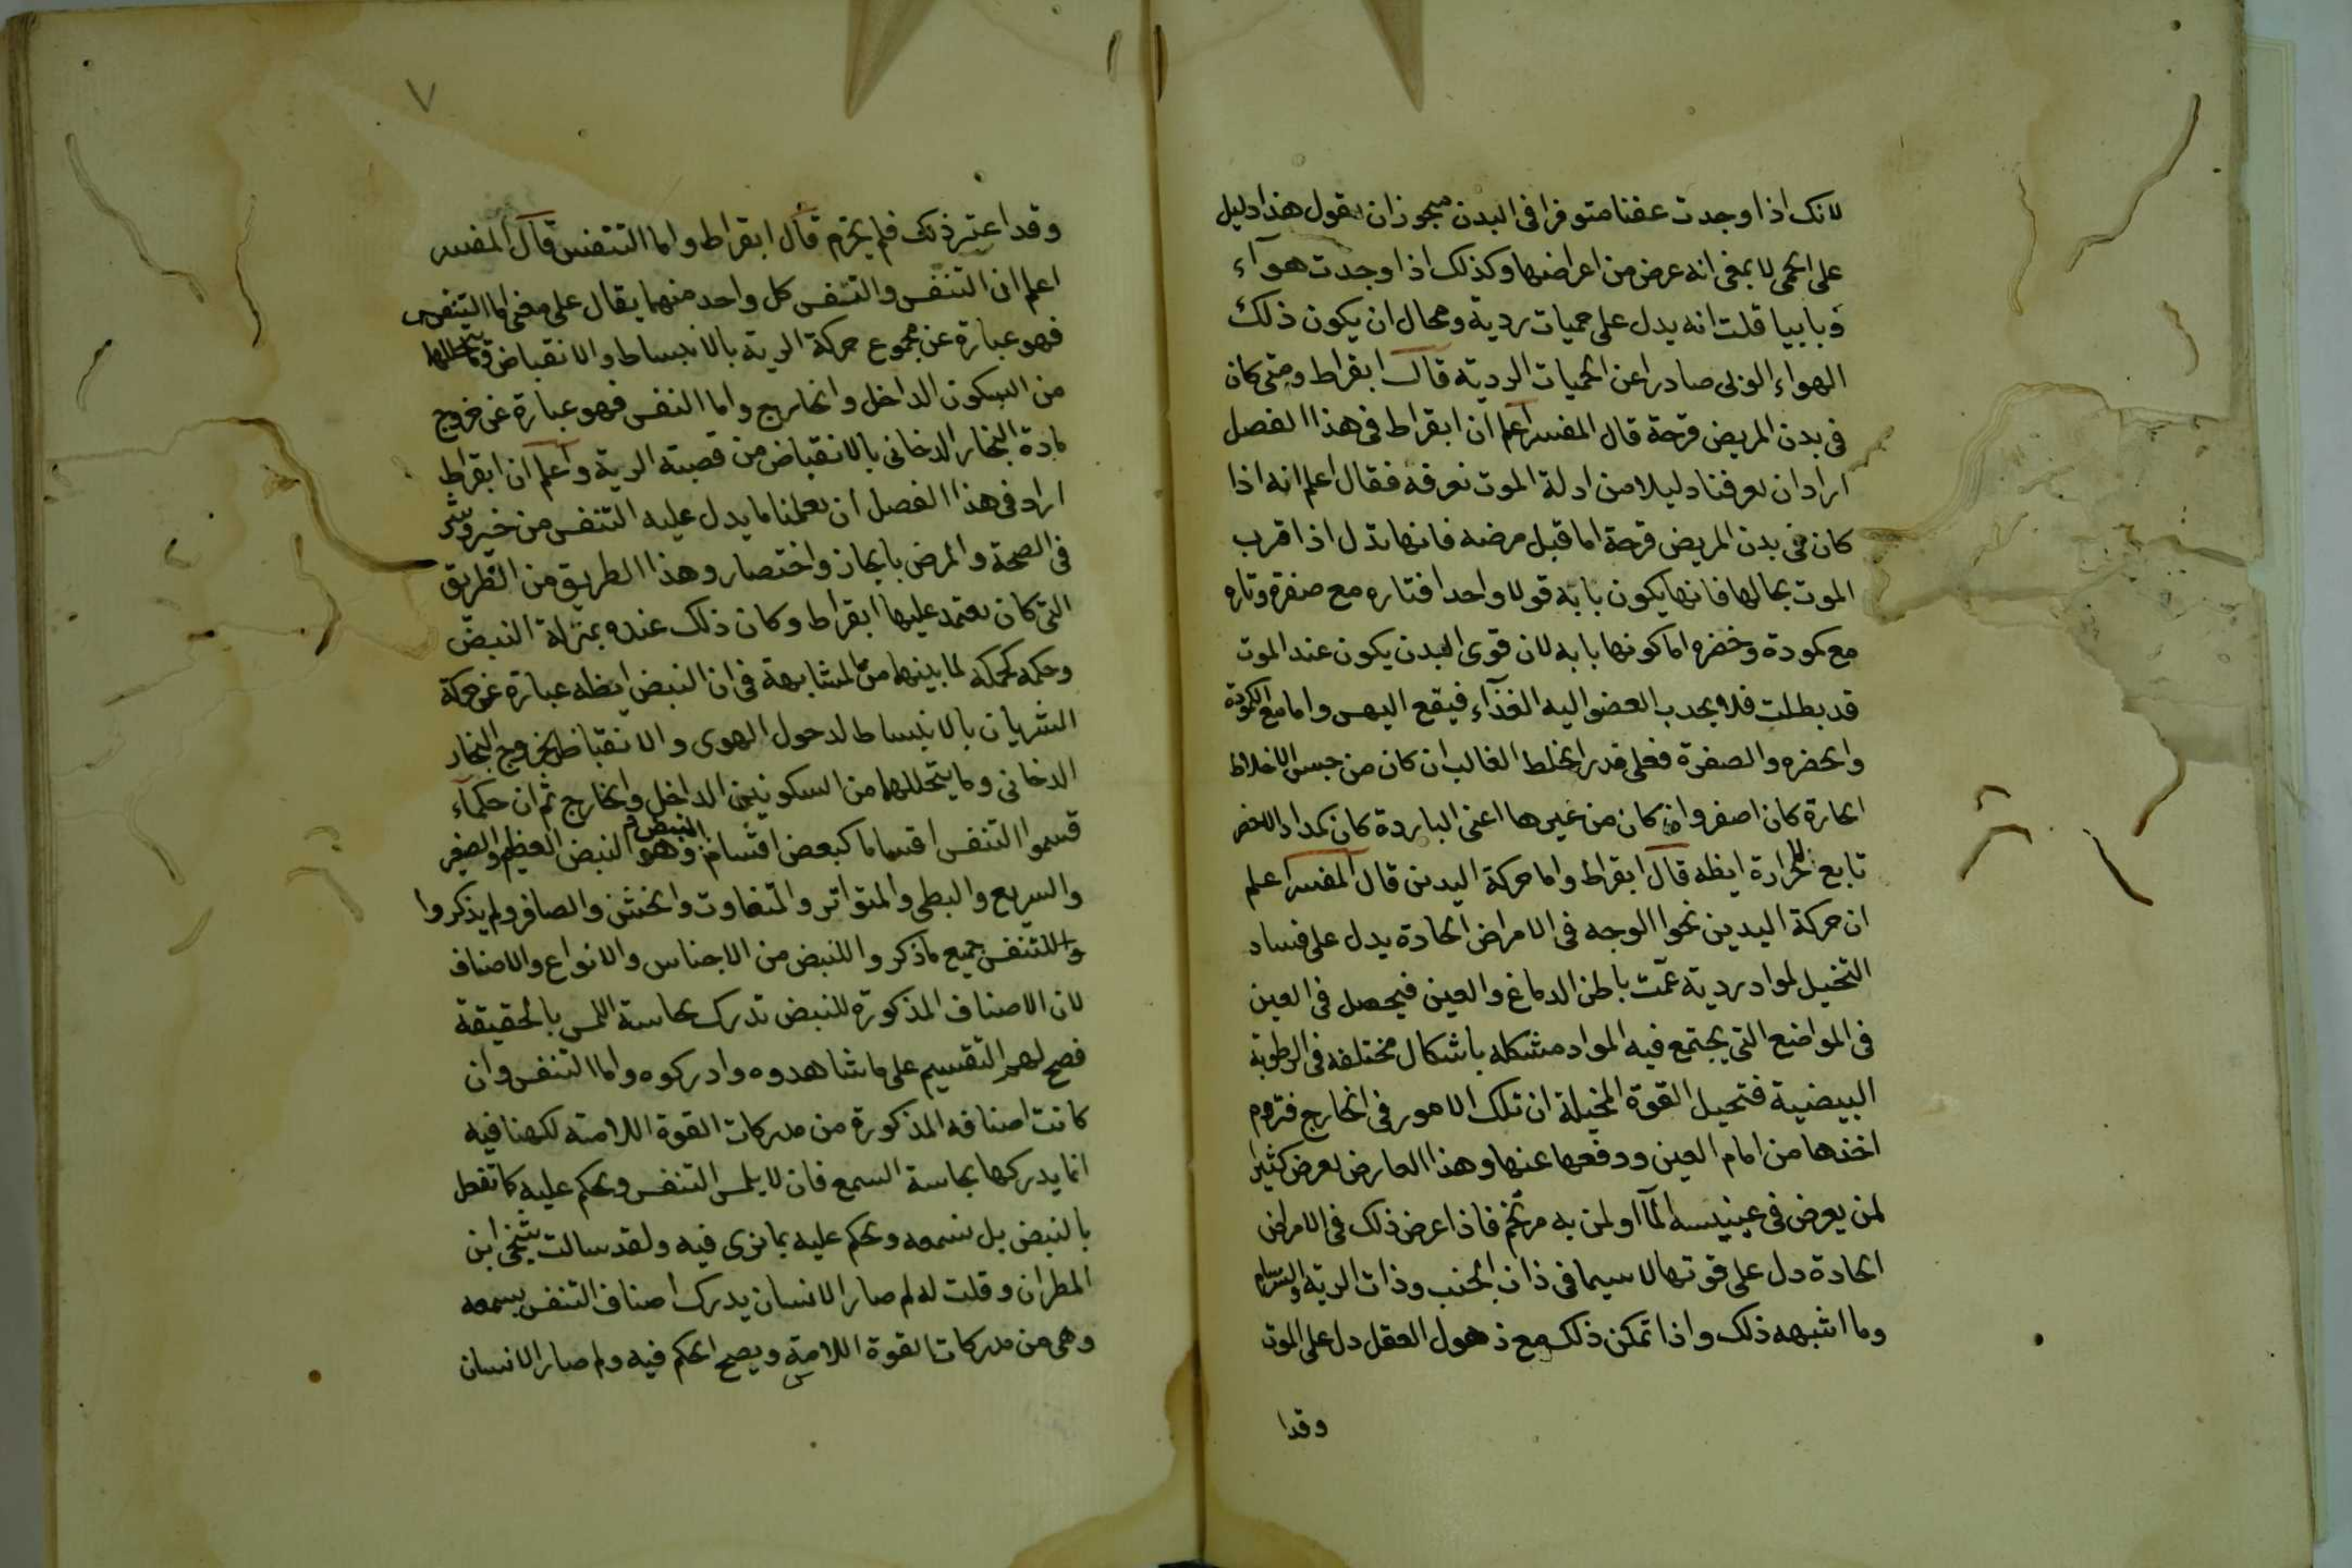 لانك اذا وجدت عفنا متوفرا فى البدن فيجوز ان نقول هذا دليل
على الحمى لا بمعنى انه عرض من اعراضها وكذلك اذا وجدت هوآء
وبابيا قلت انه يدل على حميات ردية ومحال ان يكون ذلك
الهواء الوبى صادرا عن الحميات الردية قال ابقراط ومتى كان
فى بدن المريض قرحة قال المفسر اعلم ان ابقراط فى هذا الفصل
اراد ان يعرفنا دليلا من ادلة الموت نعرفه فقال اعلم انه اذا
كان فى بدن المريض قرحة اما قبل مرضه فانها تدل اذا قرب
الموت بحالها فانها يكون يابة قولا واحدا فتاره مع صفرة وتاره
مع كمودة وخضره اما كونها يابه لان قوى البدن يكون عند الموت
قد بطلت فلا يجدب العضو اليه الغذآء فيقع اليبس واما مع الكمودة
والخضره والصفرة فعلى قدر الخلط الغالب ان كان من جنس الاخلاط
الحارة كان اصفر وان كان من غيرها اعنى الباردة كان كمدا والاخضر
تابع للحرارة ايظه قال ابقراط واما حركة اليدين قال المفسر اعلم
ان حركة اليدين نحوا الوجه فى الامراض الحادة يدل على فساد
التخيل لمواد ردية عمّت باطن الدماغ والعين فيحصل فى العين
فى المواضع التى يجتمع فيه المواد مشكله باشكال مختلفه فى الرطوبة
البيضية فتحيل القوة المخيلة ان تلك الامور فى الخارج فتروم
اخذها من امام العين ودفعها عنها وهذا العارض يعرض كثيرا
لمن يعرض فى عينيسه المآ او لمن به مرتخم فاذا عرض ذلك فى الامراض
الحادة دل على قوتها لا سيما فى ذات الجنب وذات الرية والسرسام
وما اشبهه ذلك واذا تمكن ذلك مع ذهول العقل دل على الموت
وقدا
٧
وقد اعتبر ذلك فلم يخرم قال ابقراط واما التنفس قال المفسر
اعلم ان التنفس والتنفس كل واحد منهما يقال على معنى اما التنفس
فهو عبارة عن مجموع حركة الرية بالانبساط والانقباض وما يتحللها
من السكون الداخل والخارج واما النفس فهو عبارة عن خروج
مادة البخار الدخانى بالانقباض من قصبة الرية واعلم ان ابقراط
اراد فى هذا الفصل ان يعلمنا ما يدل عليه التنفس من خير وشر
فى الصحة والمرض بايجاز واختصار وهذا الطريق من الطريق
التى كان يعتمد عليها ابقراط وكان ذلك عنده بمنزلة النبض
وحكمه كحكمه لما بينهما من المشابهة فى ان النبض ايظه عبارة عن حركة
الشريان بالانبساط لدخول الهوى والانقباض لخروج البخار
الدخانى وما يتحللهما من السكونين الداخل والخارج ثم ان حكمآء
قسموا التنفس اقساما كبعض اقسام النبض وهو النبض العظيم والصغير
والسريع والبطى والمتواتر والمتفاوت والخشن والصافر ولم يذكروا
وللتنفس جميع ما ذكروا للنبض من الاجناس والانواع والاصناف
لان الاصناف المذكورة للنبض تدرك بحاسة اللمس بالحقيقة
فصح لهم التقسيم على ما شاهدوه وادركوه واما التنفس وان
كانت اصنافه المذكورة من مدركات القوة اللامسه لكنها فيه
انما يدركها بحاسة السمع فان لا يلمس التنفس ويحكم عليه كما تفعل
بالنبض بل نسمعه ونحكم عليه بما نرى فيه ولقد سالت شيخى ابن
المطران وقلت له لم صار الانسان يدرك اصناف التنفس بسمعه
وهى من مدركات القوة اللامسة ويصح الحكم فيه ولم صار الانسان